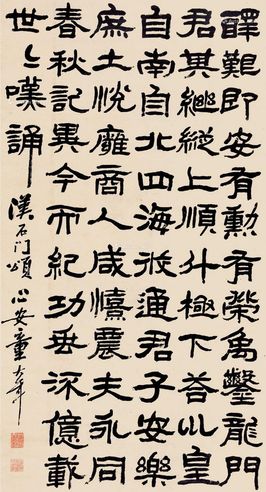 醳艱即安有勳有榮禹鑿龍門
君其繼縱上順斗極下荅巛皇
自南自北四海攸通君子安樂
庶士悅廱商人咸憘農夫永同
春秋記異今而紀功垂流億載
世〻嘆誦
漢石門頌 心安童大年